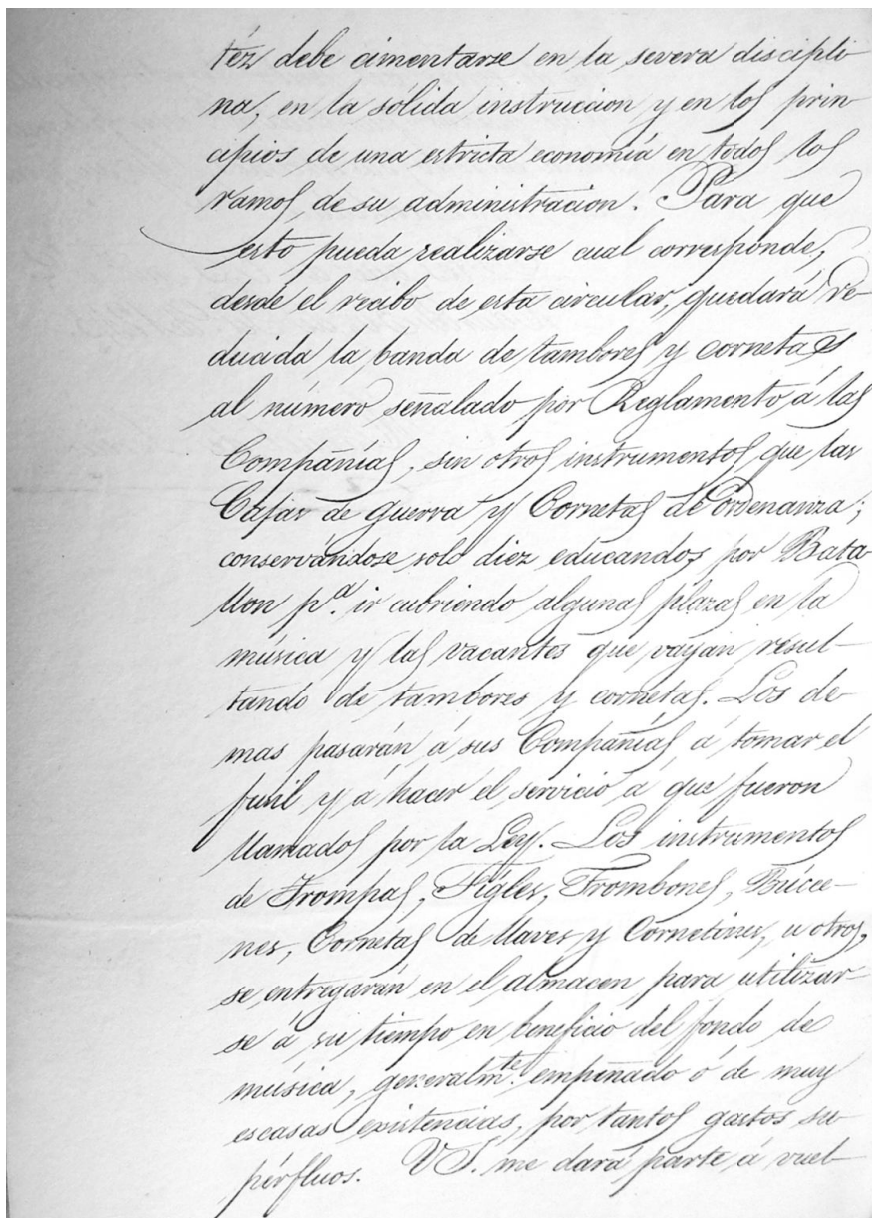 téz debe cimentarse en la severa discipli
na, en la sólida instruccion y en los prin
cipios de una estricta economía en todos los
ramos de su administracion. Para que
esto pueda realizarse cual corresponde,
desde el recibo de esta circular, quedará re-
ducida la banda de tambores y cornetas
al número señalado por Reglamento á las
Compañías, sin otros instrumentos que las
Cajas de guerra y Cornetas de Ordenanza;
conservándose solo diez educandos por Bata-
llon pª. ir cubriendo algunas plazas en la
música y las vacantes que vayan resul-
tando de tambores y cornetas. Los de-
mas pasarán á sus Compañías á tomar el
fusil y á hacer el servicio á que fueron
llamados por la Ley. Los instrumentos
de Trompas, Figles, Trombones, Búcce-
nes, Cornetas de llaves y Cornetines, u otros,
se entregarán en el almacen para utilizar-
se á su tiempo en beneficio del fondo de
música, generalmte. empeñado ó de muy
escasas existencias, por tantos gastos su-
pérfluos. V S. me dará parte á vuel-